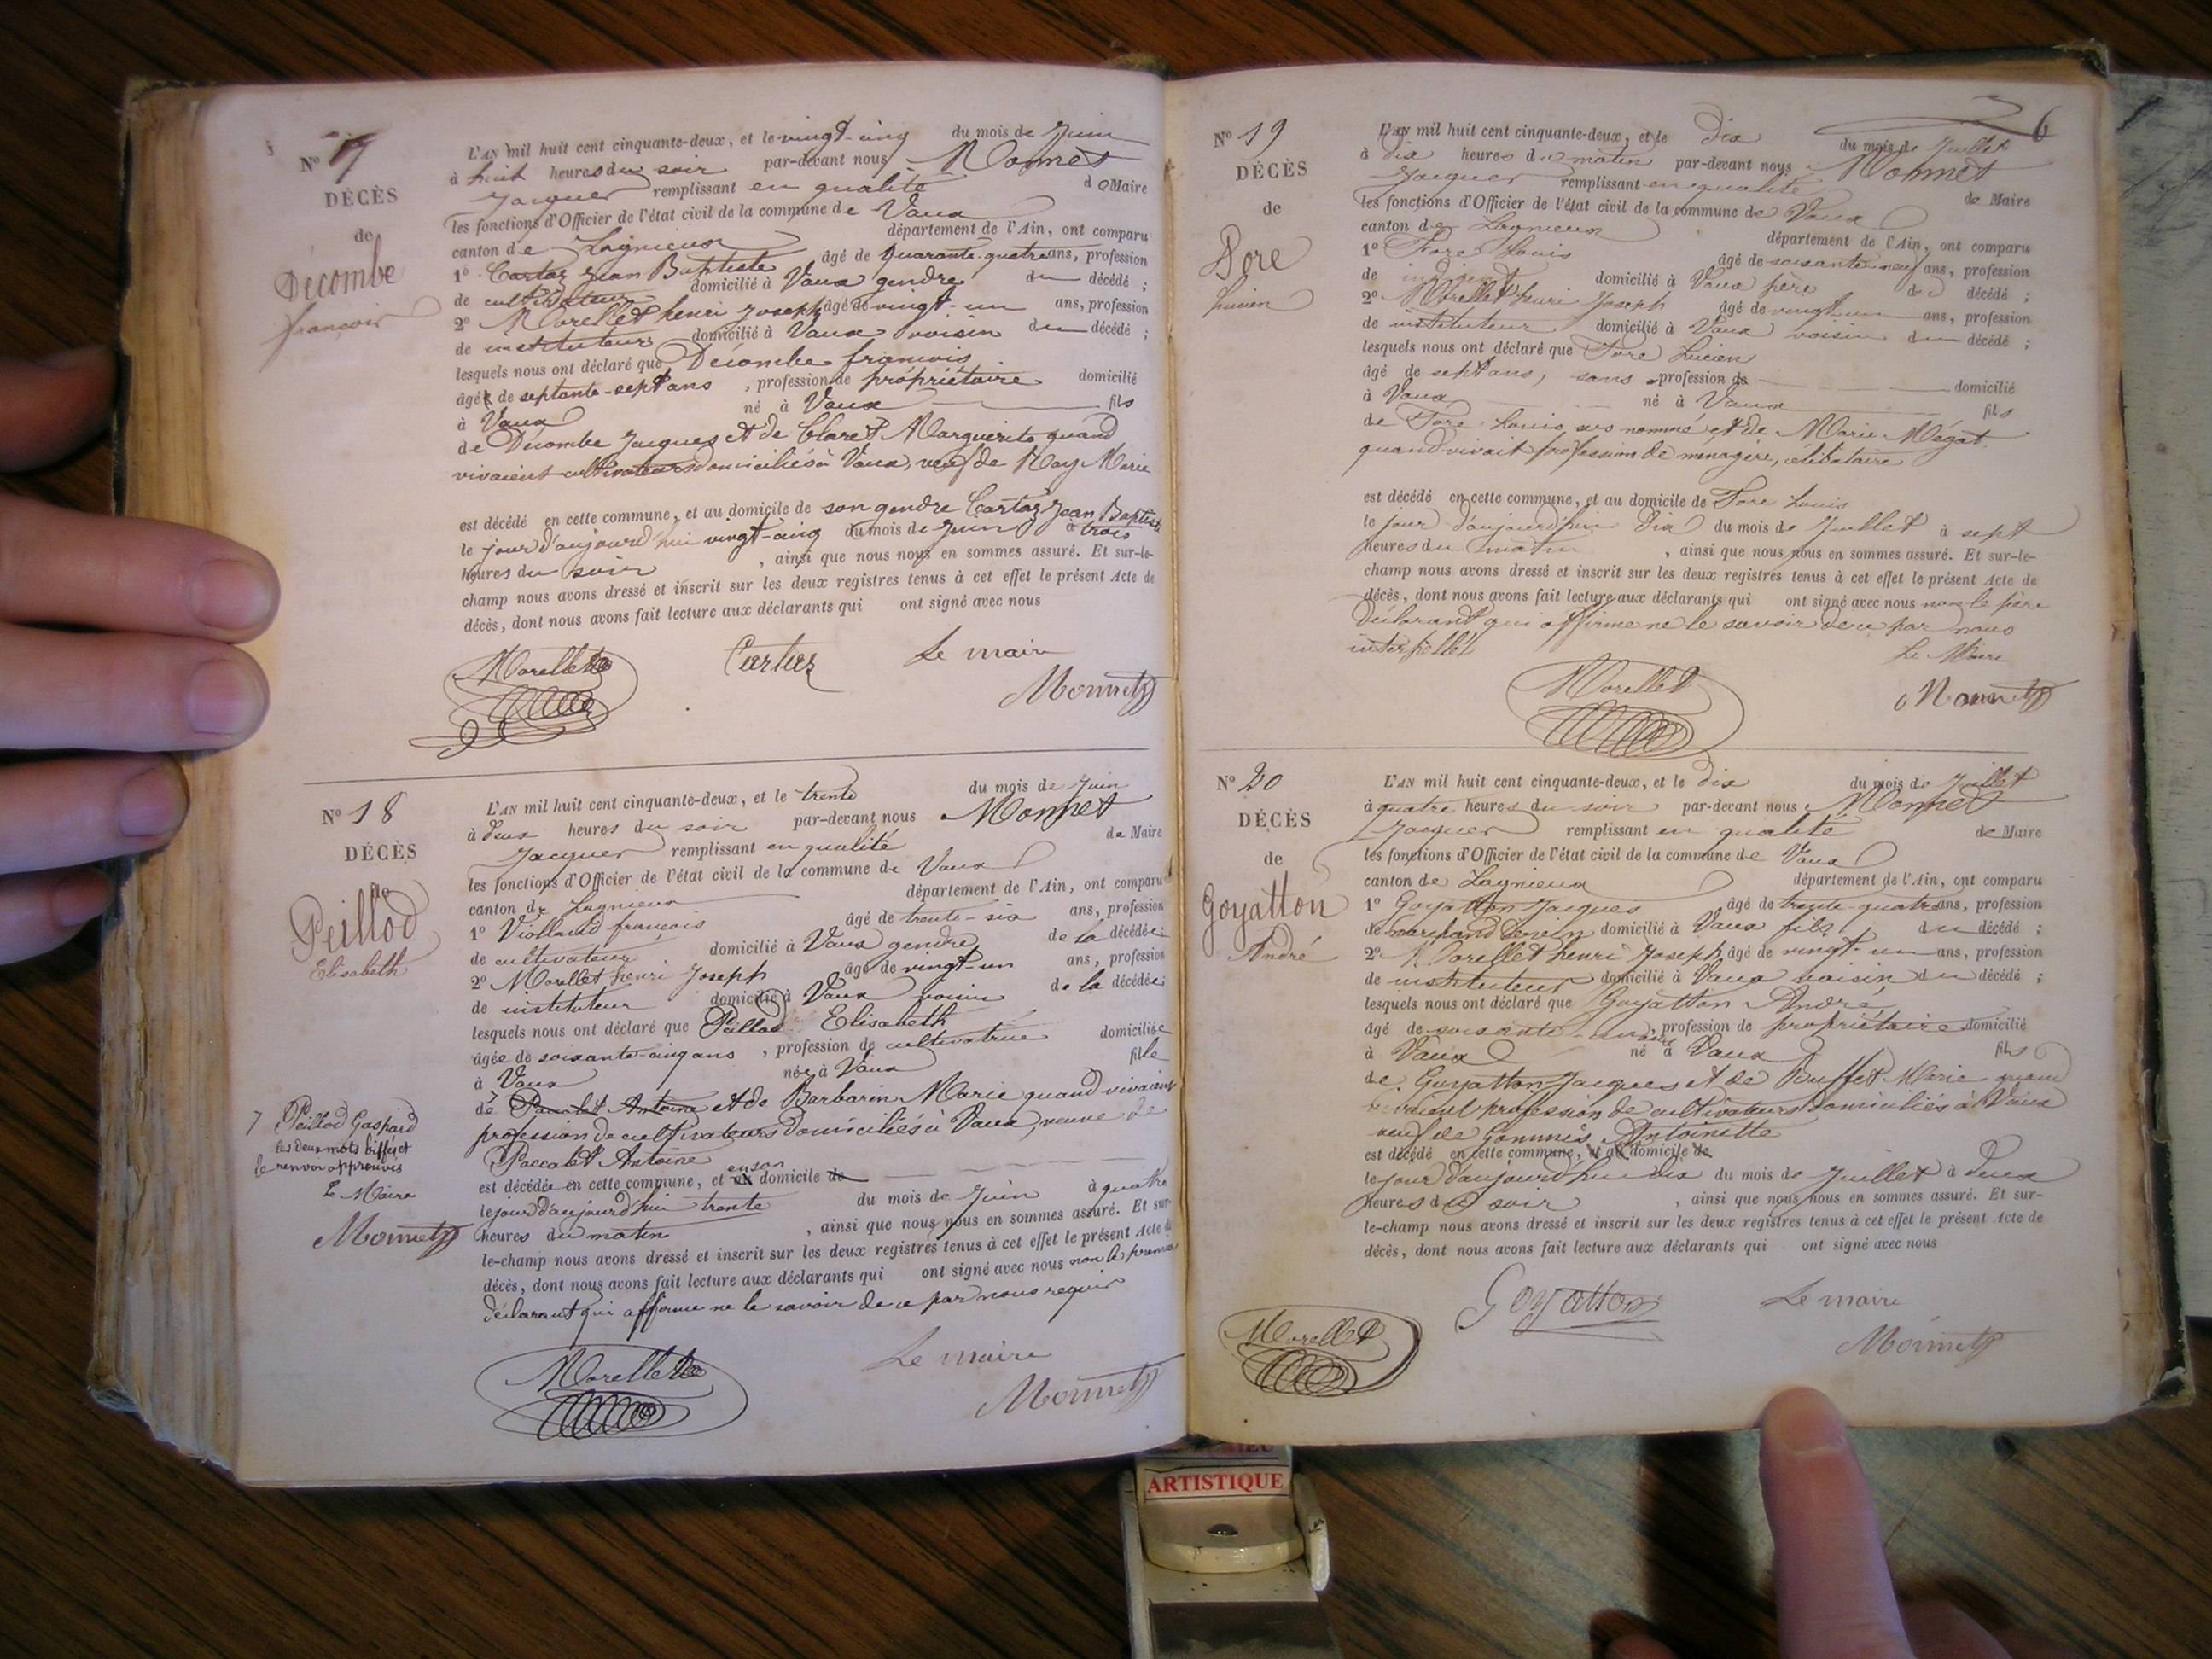 N° 17
DÉCÈS
de
Décombe
françois
L'AN mil huit cent cinquante-deux, et le vingt-cinq du mois de Juin
à huit heures du soir par-devant nous Monnet
Jacques remplissant en qualité de Maire
les fonctions d'Officier de l'état civil de la commune de Vaux
canton de Lagnieux département de l'Ain, ont comparu
1° Cartaz Jean Baptiste âgé de Quarante-quatre ans, profession
de cultivateur domicilié à Vaux gendre du décédé ;
2° Morellet henri Joseph âgé de vingt-un ans, profession
de instituteur domicilié à Vaux voisin du décédé ;
lesquels nous ont déclaré que Décombe francois
âgé de septante-sept ans, profession de propriétaire domicilié
à Vaux né à Vaux fils
de Décombe Jacques et de Claret Marguerite quand
vivaient cultivateurs domiciliés à Vaux, veuf de Roy Marie
est décédé en cette commune, et au domicile de son gendre Cartaz Jean Baptiste
le jour d'aujourd'hui vingt-cinq du mois de Juin à trois
heures du soir, ainsi que nous nous en sommes assuré. Et sur-le-
champ nous avons dressé et inscrit sur les deux registres tenus à cet effet le présent Acte de
décès, dont nous avons fait lecture aux déclarants qui ont signé avec nous
Morellet Cartaz Le maire
Monnet
N° 18
DÉCÈS
de
Peillod
Elisabeth
L'AN mil huit cent cinquante-deux, et le trente du mois de Juin
à deux heures du soir par-devant nous Monnet
Jacques remplissant en qualité de Maire
les fonctions d'Officier de l'état civil de la commune de Vaux
canton de Lagnieux département de l'Ain, ont comparu
1° Violland françois âgé de trente-six ans, profession
de cultivateur domicilié à Vaux gendre de la décédée
2° Morellet henri Joseph âgé de vingt-un ans, profession
de instituteur domicilié à Vaux voisin de la décédée
lesquels nous ont déclaré que Peillod Elisabeth
âgée de soixante-cinq ans, profession de cultivatrice domiciliée
à Vaux née à Vaux fille
de Paccalet Antoine et de Barbarin Marie quand vivaient
profession de cultivateurs domiciliés à Vaux, veuve de
Paccalet Antoine
est décédée en cette commune, et en son au domicile de
le jour d'aujourd'hui trente du mois de Juin à quatre
heures du matin, ainsi que nous nous en sommes assuré. Et sur-
le-champ nous avons dressé et inscrit sur les deux registres tenus à cet effet le présent Acte de
décès, dont nous avons fait lecture aux déclarants qui ont signé avec nous non le premier
déclarant qui affirme ne le savoir de ce par nous requis
Peillod Gaspard
les deux mots biffés et
le renvoi approuvés
Le Maire
Monnet
Morellet Le maire
Monnet
6
N° 19
DÉCÈS
de
Fore
Lucien
L'AN mil huit cent cinquante-deux, et le Dix du mois de Juillet
à dix heures du matin par-devant nous Monnet
Jacques remplissant en qualité de Maire
les fonctions d'Officier de l'état civil de la commune de Vaux
canton de Lagnieux département de l'Ain, ont comparu
1° Fore Louis âgé de soixante-neuf ans, profession
de indigent domicilié à Vaux père du décédé ;
2° Morellet henri Joseph âgé de vingt un ans, profession
de instituteur domicilié à Vaux voisin du décédé ;
lesquels nous ont déclaré que Fore Lucien
âgé de sept ans, sans profession de domicilié
à Vaux né à Vaux fils
de Fore Louis sus nommé et de Marie Mégat
quand vivait profession de ménagère, célibataire
est décédé en cette commune, et au domicile de Fore Louis
le jour d'aujourd'hui Dix du mois de Juillet à sept
heures du matin, ainsi que nous nous en sommes assuré. Et sur-le-
champ nous avons dressé et inscrit sur les deux registres tenus à cet effet le présent Acte de
décès, dont nous avons fait lecture aux déclarants qui ont signé avec nous non le père
Déclarant qui affirme ne le savoir de ce par nous
interpellé
Le Maire
Morellet Monnet
N° 20
DÉCÈS
de
Goyatton
André
L'AN mil huit cent cinquante-deux, et le dix du mois de Juillet
à quatre heures du soir par-devant nous Monnet
Jacques remplissant en qualité de Maire
les fonctions d'Officier de l'état civil de la commune de Vaux
canton de Lagnieux département de l'Ain, ont comparu
1° Goyatton Jacques âgé de trente-quatre ans, profession
de marchand domicilié à Vaux fils du décédé ;
2° Morellet henri Joseph, âgé de vingt-un ans, profession
de instituteur domicilié à Vaux voisin du décédé ;
lesquels nous ont déclaré que Goyatton André
âgé de soixante-un ans, profession de propriétaire domicilié
à Vaux né à Vaux fils
de Goyatton Jacques et de Buffet Marie quand
vivaient profession de cultivateurs domiciliés à Vaux
veuf de Antoinette
est décédé en cette commune, et au domicile de
le jour d'aujourd'hui dix du mois de Juillet à deux
heures du soir, ainsi que nous nous en sommes assuré. Et sur-
le-champ nous avons dressé et inscrit sur les deux registres tenus à cet effet le présent Acte de
décès, dont nous avons fait lecture aux déclarants qui ont signé avec nous
Goyatton Le maire
Morellet Monnet
ARTISTIQUE